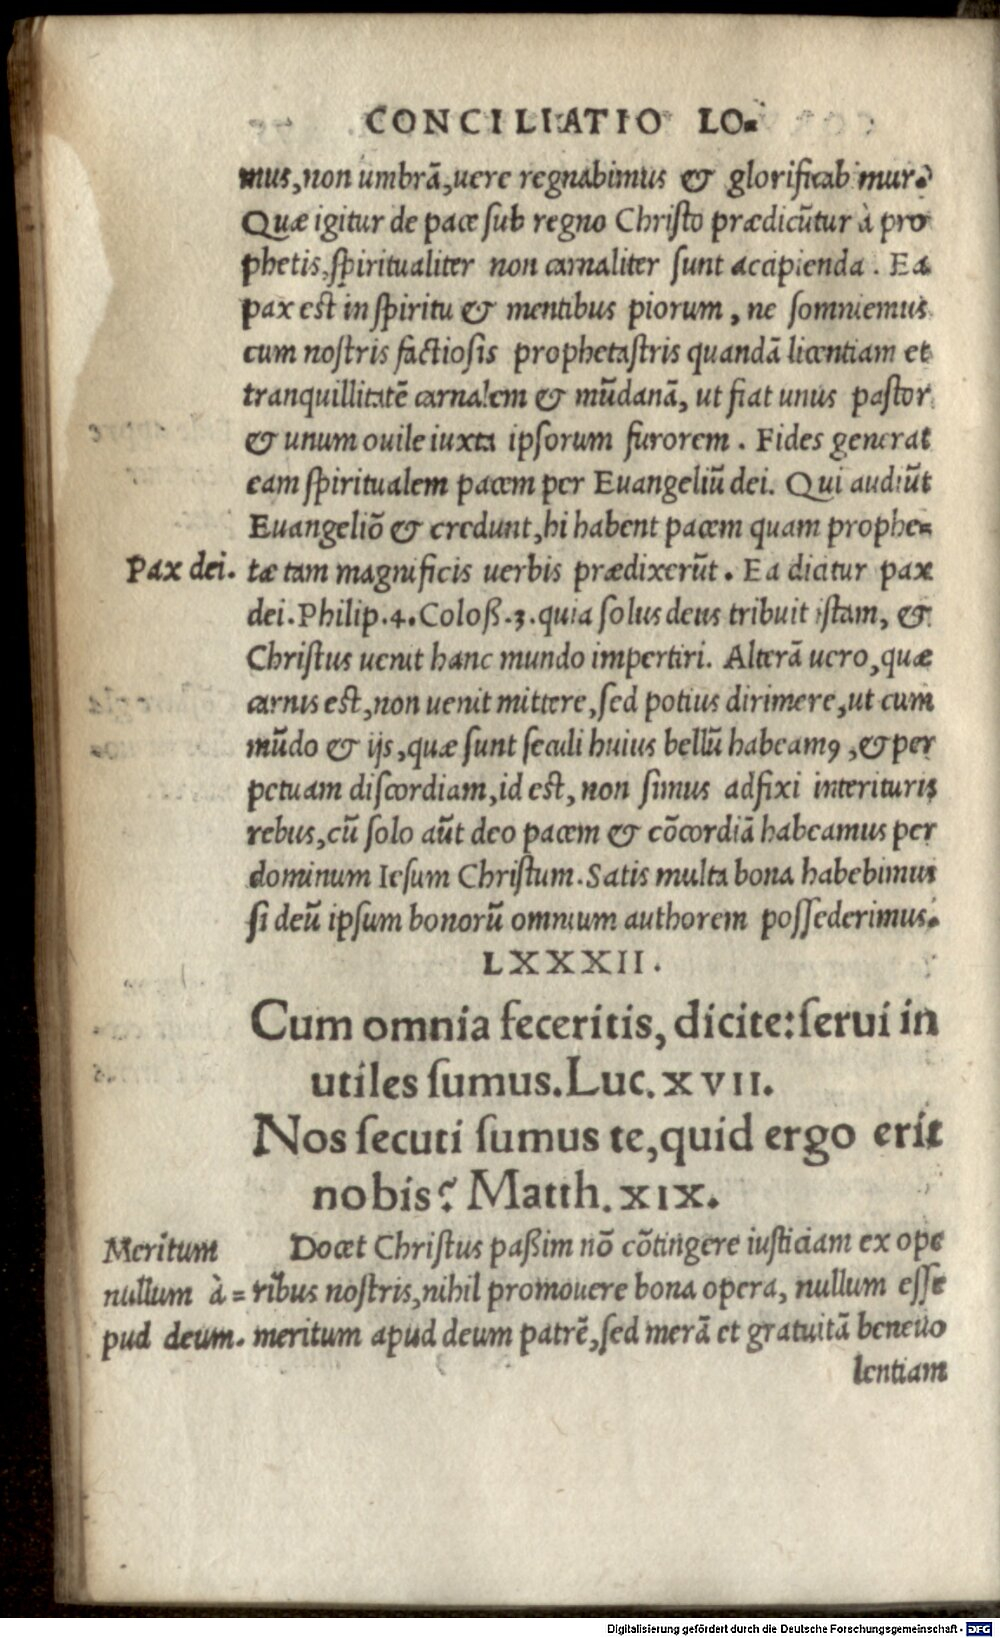 CONCILIATIO LO-
mus, non umbrã, uere regnabimus & glorificabimur.
Quæ igitur de pace ſub regno Chriſto prædicũtur à pro
phetis, ſpiritualiter non carnaliter ſunt accipienda. Ea
pax est in ſpiritu & mentibus piorum, ne ſomniemus
cum noſtris factioſis prophetaſtris quandã licentiam et
tranquillitatẽ carnalem & mũdanã, ut fiat unus paſtor
& unum ouile iuxta ipſorum furorem. Fides generat
eam ſpiritualem pacem per Euangeliũ dei. Qui audiũt
Euangeliõ & credunt, hi habent pacem quam prophe=
Pax dei. tæ tam magnificis uerbis prædixerũt. Ea dicitur pax
dei. Philip. 4. Coloß. 3. quia ſolus deus tribuit iſtam, &
Chriſtus uenit hanc mundo impertiri. Alterã uero, quæ
carnis est, non uenit mittere, ſed potius dirimere, ut cum
mũdo & ijs, quæ ſunt ſeculi huius bellũ habeamꝰ, & per
petuam diſcordiam, id est, non ſimus adfixi interituris
rebus, cũ ſolo aũt deo pacem & cõcordiã habeamus per
dominum Ieſum Chriſtum. Satis multa bona habebimus
ſi deũ ipſum bonorũ omnium authorem poſſederimus.
LXXXII.
Cum omnia feceritis, dicite: ſerui in
utiles ſumus. Luc. XVII.
Nos ſecuti ſumus te, quid ergo erit
nobis? Matth. XIX.
Meritum Docet Chriſtus paßim nõ cõtingere iuſticiam ex ope
nullum à= ribus noſtris, nihil promouere bona opera, nullum eſſe
pud deum. meritum apud deum patrẽ, ſed merã et gratuitã beneuo
lentiam
Digitalisierung gefördert durch die Deutsche Forschungsgemeinschaft - DFG